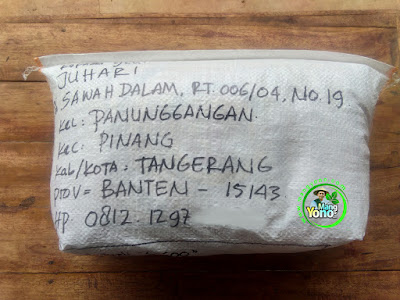 JUHARI
SAWAH DALAM, RT.006/04, NO.19
Kel: PANUNGGANGAN.
Kec: PINANG
Kab/KOTA: TANGERANG
PROV= BANTEN - 15143
HP. 0812-1297
Mang
Yono